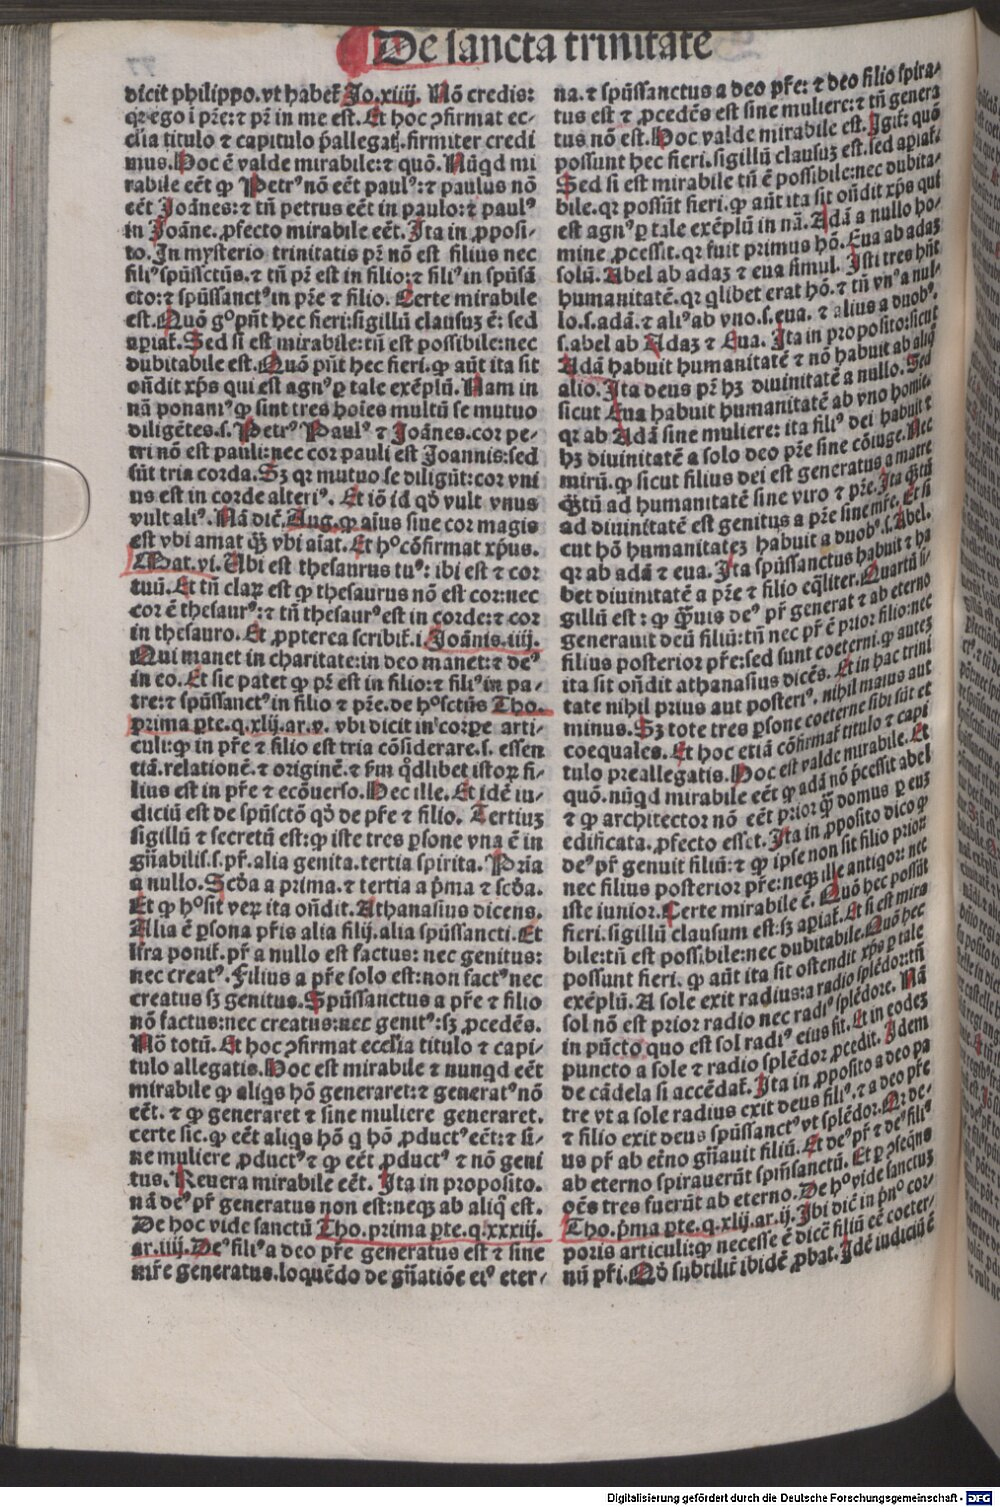 De sancta trinitate
dicit philippo.vt habet᷑ Jo.xiiij. Nō credis:
qꝛ ego i pr̄e:⁊ pr̄ in me est. Et hoc ↄfirmat ec-
clīa titulo ⁊ capitulo p̄allegat᷑.firmiter credi
mus. Hoc ē valde mirabile:⁊ quō. Nūqd mi
rabile eēt ꝙ Petrꝰ nō eēt paulꝰ:⁊ paulus nō
eēt Joānes:⁊ tn̄ petrus eēt in paulo:⁊ paulꝰ
in Joāne.ꝓfecto mirabile eēt. Ita in ꝓposi-
to. In mysterio trinitatis pr̄ nō est filius nec
filiꝰ spūssctūs.⁊ tn̄ pr̄ est in filio:⁊ filiꝰ in spūsā
cto:⁊ spūssanctꝰ in pr̄e ⁊ filio. Certe mirabile
est. Quō gͦ pn̄t hec fieri:sigillū clausuꝫ ē: sed
apiat᷑. Sed si est mirabile:tn̄ est possibile:nec
dubitabile est. Quō pn̄t hec fieri.ꝙ aūt ita sit
on̄dit xp̄s qui est agnꝰ ꝑ tale exēplū. Nam in
nā ponamꝰ ꝙ sint tres hoīes multū se mutuo
diligētes.s. Petrꝰ Paulꝰ ⁊ Joānes.cor pe-
tri nō est pauli:nec cor pauli est Joannis:sed
sūt tria corda. Sꝫ qꝛ mutuo se diligūt:cor vni
us est in corde alteriꝰ. Et iō id qd̄ vult vnus
vult aliꝰ. Nā dic̄. Aug.ꝙ aīus siue cor magis
est vbi amat qꝫ̄ vbi aīat. Et hͦ cōfirmat xp̄us.
Mat.vi. Ubi est thesaurus tuꝰ: ibi est ⁊ cor
tuū. Et tn̄ claꝝ est ꝙ thesaurus nō est cor:nec
cor ē thesaurꝰ:⁊ tn̄ thesaurꝰ est in corde:⁊ cor
in thesauro. Et ꝓpterea scribit᷑.i. Joānis.iiij.
Qui manet in charitate:in deo manet:⁊ deꝰ
in eo. Et sic patet ꝙ pr̄ est in filio:⁊ filiꝰ in pa-
tre:⁊ spūssanctꝰ in filio ⁊ pr̄e. de hͦ sctūs Tho.
prima ꝑte.q.xlij.ar.v. vbi dicit in corꝑe arti-
culi:ꝙ in pr̄e ⁊ filio est tria cōsiderare.s. essen
tiā.relationē.⁊ originē.⁊ ẜm qd̄libet istoꝝ fi-
lius est in pr̄e ⁊ ecōuerso. Hec ille. Et idē iu-
diciū est de spūsctō qd̄ de pr̄e ⁊ filio. Tertiuꝫ
sigillū ⁊ secretū est:ꝙ iste tres ꝑsone vna ē in
gn̄abilis.s.pr̄. alia genita.tertia spirita. Prīa
a nullo. Scd̄a a prima.⁊ tertia a p̄ma ⁊ scd̄a.
Et ꝙ hͦ sit veꝝ ita on̄dit. Athanasius dicens.
Alia ē ꝑsona pr̄is alia filij.alia spūssancti. Et
ifra ponit᷑. pr̄ a nullo est factus: nec genitus:
nec creatꝰ. Filius a pr̄e solo est:non factꝰ nec
creatus sꝫ genitus. Spūssanctus a pr̄e ⁊ filio
nō factus:nec creatus:nec genitꝰ:sꝫ ꝓcedēs.
Nō totū. Et hoc ↄfirmat ecclīa titulo ⁊ capi-
tulo allegatis. Hoc est mirabile ⁊ nunqd eēt
mirabile ꝙ aliqs hō generaret:⁊ generatꝰ nō
eēt.⁊ ꝙ generaret ⁊ sine muliere generaret.
certe sic.ꝙ eēt aliqs hō q hō ꝓductꝰ eēt:⁊ si-
ne muliere ꝓductꝰ ⁊ ꝙ eēt ꝓductꝰ ⁊ nō geni
tus. Reuera mirabile eēt. Ita in proposito.
nā deꝰ pr̄ generatus non est:neqꝫ ab aliq̄ est.
De hoc vide sanctū Tho.prima ꝑte.q.xxxiij.
ar.iiij. Deꝰ filiꝰ a deo pr̄e generatus est ⁊ sine
mr̄e generatus.loquēdo de gn̄atiōe eiꝰ eter-
na.⁊ spūssanctus a deo pr̄e: ⁊ deo filio spira-
tus est ⁊ ꝓcedēs est sine muliere:⁊ tn̄ genera
tus nō est. Hoc valde mirabile est. Igit᷑ quō
possunt hec fieri.sigillū clausuꝫ est.sed apiat᷑.
Sed si est mirabile tn̄ ē possibile:nec dubita-
bile.qꝛ possūt fieri.ꝙ aūt ita sit on̄dit xp̄s qui
est agnꝰ ꝑ tale exēplū in nā. Adā a nullo ho-
mine ꝓcessit.qꝛ fuit primus hō. Eua ab adaꝫ
solū. Abel ab adaꝫ ⁊ eua simul. Isti tres hn̄t
humanitatē.qꝛ qlibet erat hō.⁊ tn̄ vnꝰ a nul-
lo.s.adā.⁊ aliꝰ ab vno.s.eua.⁊ alius a duobꝰ.
s.abel ab Adaꝫ ⁊ Eua. Ita in proposito:sicut
Adā habuit humanitatē ⁊ nō habuit ab aliq̄
alio. Ita deus pr̄ hꝫ diuinitatē a nullo. Sed
sicut Eua habuit humanitatē ab vno homīe.
qꝛ ab Adā sine muliere: ita filiꝰ dei habuit ⁊
hꝫ diuinitatē a solo deo pr̄e sine cōiuge. Nec
mirū.ꝙ sicut filius dei est generatus a matre
qꝫ̄tū ad humanitatē sine viro ⁊ pr̄e. Ita qꝫ̄tū
ad diuinitatē est genitus a pr̄e sine mr̄e. Et si
cut hō humanitateꝫ habuit a duobꝰ.s. Abel.
qꝛ ab adā ⁊ eua. Ita spūssanctus habuit ⁊ ha
bet diuinitatē a pr̄e ⁊ filio eq̄liter. Quartū si-
gillū est : ꝙ qꝫ̄uis deꝰ pr̄ generat ⁊ ab eterno
generauit deū filiū:tn̄ nec pr̄ ē prior filio:nec
filius posterior pr̄e:sed sunt coeterni.ꝙ auteꝫ
ita sit on̄dit athanasius dicēs. Et in hac trini
tate nihil prius aut posteriꝰ. nihil maius aut
minus. Sꝫ tote tres ꝑsone coeterne sibi sūt et
coequales. Et hoc etiā cōfirmat᷑ titulo ⁊ capi
tulo preallegatis. Hoc est valde mirabile. Et
quō.nūqd mirabile eēt ꝙ adā nō p̄cessit abel
⁊ ꝙ architector nō eēt prior qꝫ̄ domus ꝑ euꝫ
edificata.ꝓfecto esset. Ita in ꝓposito dico ꝙ
deꝰ pr̄ genuit filiū:⁊ ꝙ ipse non sit filio prior
nec filius posterior pr̄e:neqꝫ ille antiqor: nec
iste iunior. Certe mirabile ē. Quō hec possūt
fieri.sigillū clausum est:sꝫ apiat᷑. Et si est mira
bile:tn̄ est possibile:nec dubitabile. Quō hec
possunt fieri.ꝙ aūt ita sit ostendit xp̄s ꝑ tale
exēplū. A sole exit radius:a radio splēdor:tn̄
sol nō est prior radio nec radiꝰ splēdore. Nā
in pūcto quo est sol radiꝰ eius fit. Et in eodeꝫ
puncto a sole ⁊ radio splēdor ꝓcedit. Idem
de cādela si accēdat᷑. Ita in ꝓposito a deo pa
tre vt a sole radius exit deus filiꝰ.⁊ a deo pr̄e
⁊ filio exit deus spūssanctꝰ vt splēdor. Qꝛ de-
us pr̄ ab et̄no gn̄auit filiū. Et deꝰ pr̄ ⁊ deꝰ filiꝰ
ab eterno spirauerūt spm̄sanctū. Et ꝑ ↄseqn̄s
oēs tres fuerūt ab eterno. De hͦ vide sanctus
Tho.p̄ma ꝑte.q.xlij.ar.ij. Ibi dic̄ in pͥnͦ cor-
poris articuli:ꝙ necesse ē dicē filiū eē coeter-
nū pr̄i. Qd̄ subtiliꝰ ibidē ꝓbat. Idē iudiciū ē
Digitalisierung gefördert durch die Deutsche Forschungsgemeinschaft - DFG